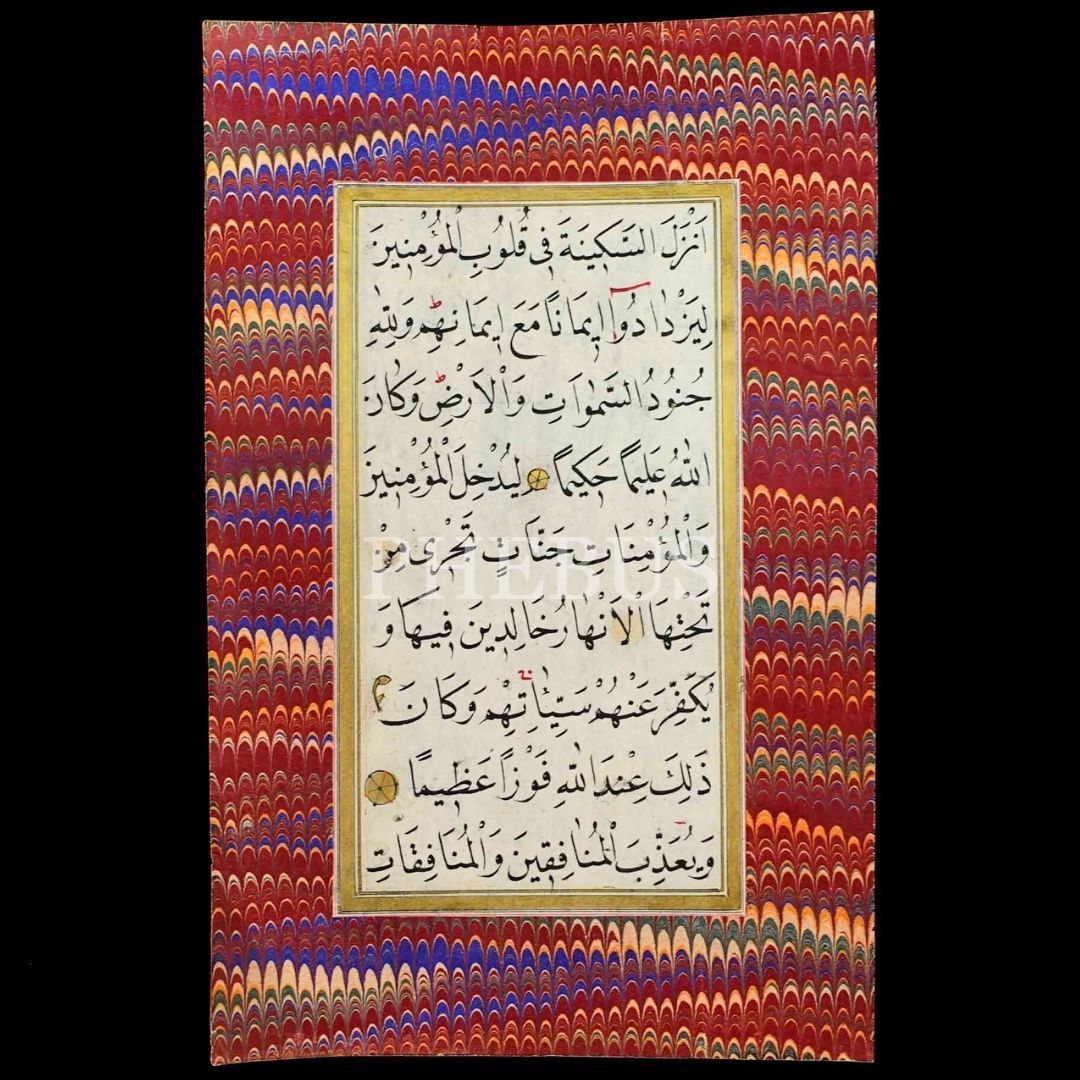 اَنْزَلَ السَّكِينَةَ فِى قُلُوبِ الْمُؤْمِنِينَ
لِيَزْدَادُوٓا اِيمَانًا مَعَ اِيمَانِهِمْ وَلِلّٰهِ
جُنُودُ السَّمٰوَاتِ وَالْاَرْضِ وَكَانَ
اللّٰهُ عَلِيمًا حَكِيمًا لِيُدْخِلَ الْمُؤْمِنِينَ
وَالْمُؤْمِنَاتِ جَنَّاتٍ تَجْرِى مِنْ
PHEBUS
تَحْتِهَا الْاَنْهَارُ خَالِدِينَ فِيهَا وَ
يُكَفِّرَ عَنْهُمْ سَيِّـَٔاتِهِمْ وَكَانَ
ذٰلِكَ عِنْدَ اللّٰهِ فَوْزًا عَظِيمًا
وَيُعَذِّبَ الْمُنَافِقِينَ وَالْمُنَافِقَاتِ